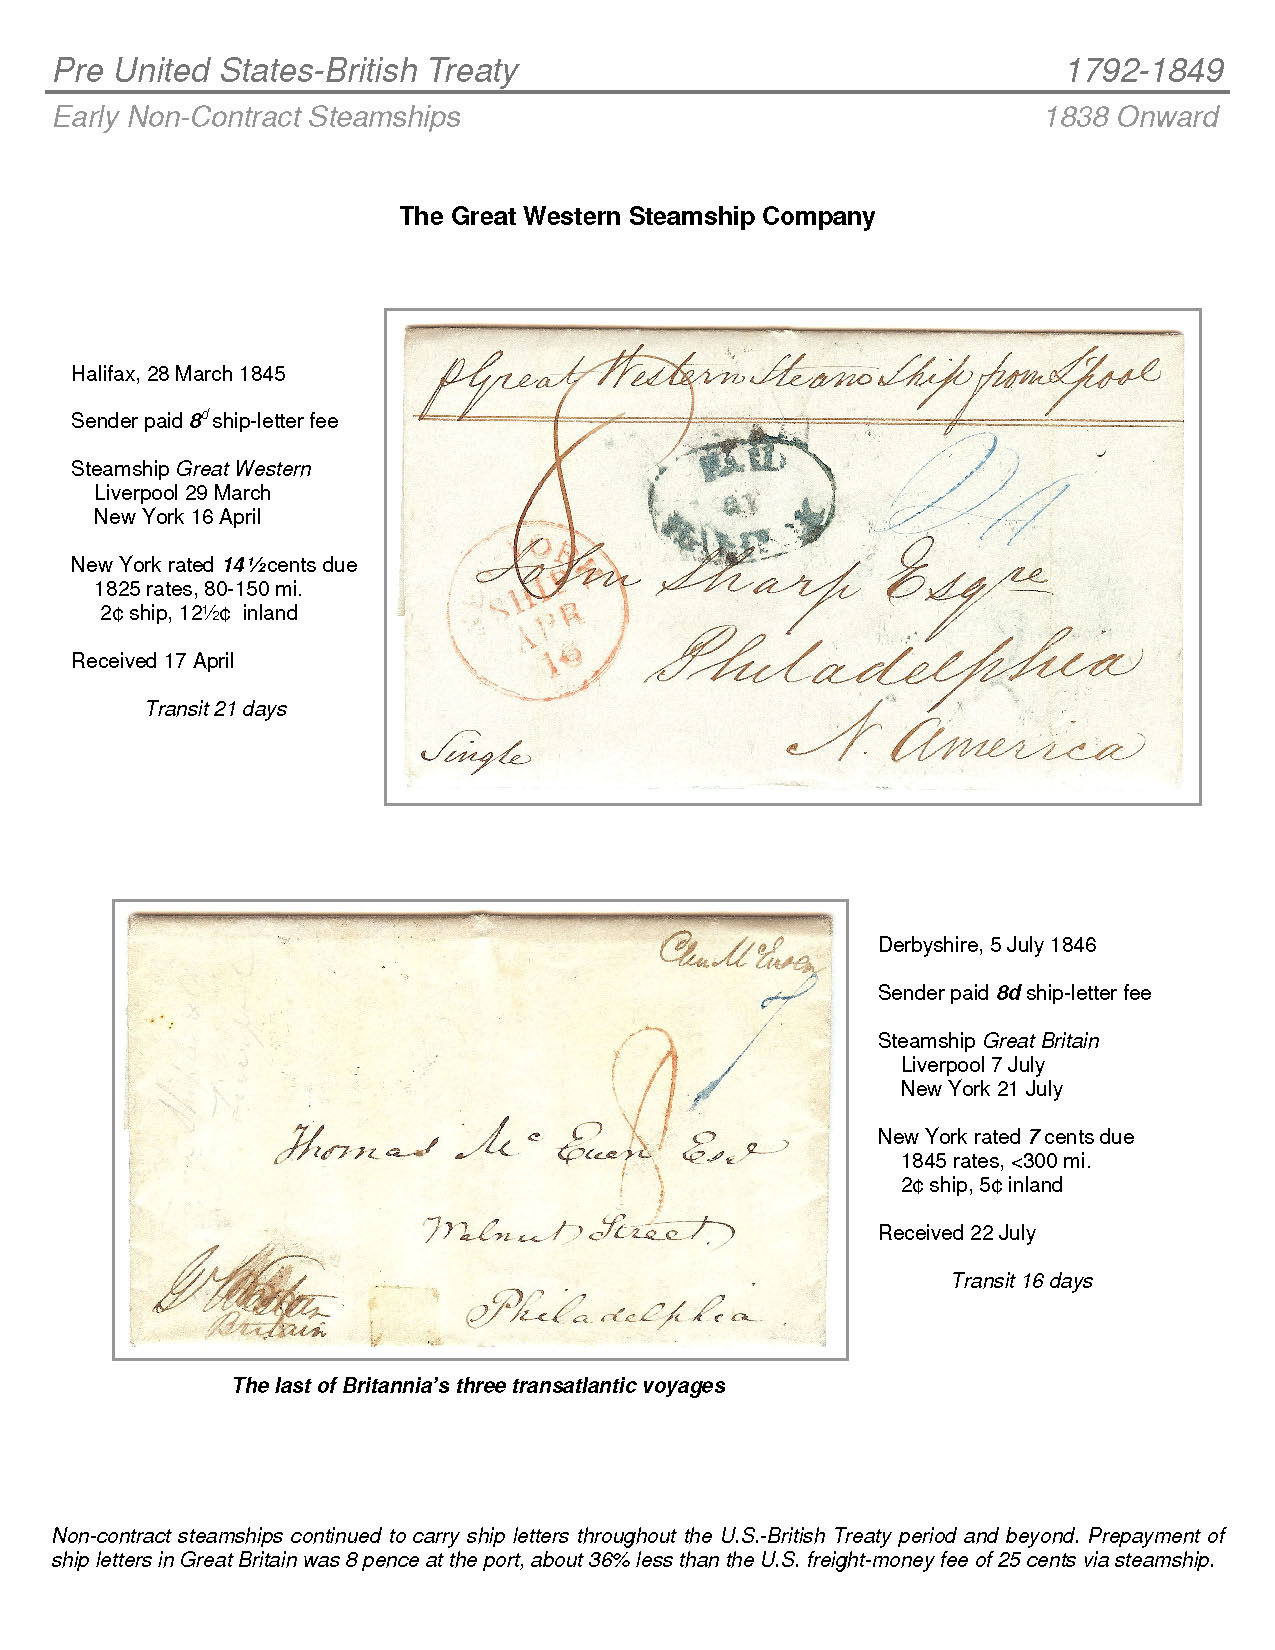 Pre United States-British Treaty 1792-1849
Early Non-Contract Steamships 1838 Onward
The Great Western Steamship Company
Halifax, 28 March 1845
Sender paid 8d ship-letter fee
Steamship Great Western
Liverpool 29 March
New York 16 April
New York rated 14½cents due
1825 rates, 80-150 mi.
2¢ ship, 12½¢ inland
Received 17 April
Transit 21 days
p Great Western Steam Ship from L'pool
8
PAID
AT
John Sharp Esqre
YORK
SHIP
APR
16
Philadelphia
N. America
Single
Derbyshire, 5 July 1846
Sender paid 8d ship-letter fee
Steamship Great Britain
Liverpool 7 July
New York 21 July
New York rated 7 cents due
1845 rates, <300 mi.
2¢ ship, 5¢ inland
Received 22 July
Transit 16 days
7
8
Thomas Mc Euen Esq
Walnut Street
Philadelphia
Britain
The last of Britannia's three transatlantic voyages
Non-contract steamships continued to carry ship letters throughout the U.S.-British Treaty period and beyond. Prepayment of
ship letters in Great Britain was 8 pence at the port, about 36% less than the U.S. freight-money fee of 25 cents via steamship.